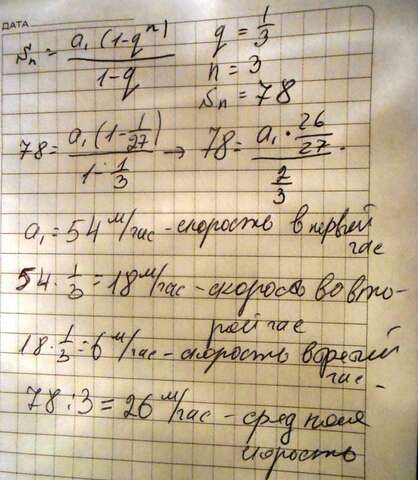 ДАТА
Sn = a₁(1-qⁿ) / 1-q
q = 1/3
n = 3
Sn = 78
78 = a₁(1-1/27) / 1-1/3 → 78 = a₁·26/27 / 2/3
a₁ = 54 м/час - скорость в первый
час
54·1/3 = 18 м/час - скорость во вто-
рой час
18·1/3 = 6 м/час - скорость в третий
час
78:3 = 26 м/час - средняя
скорость